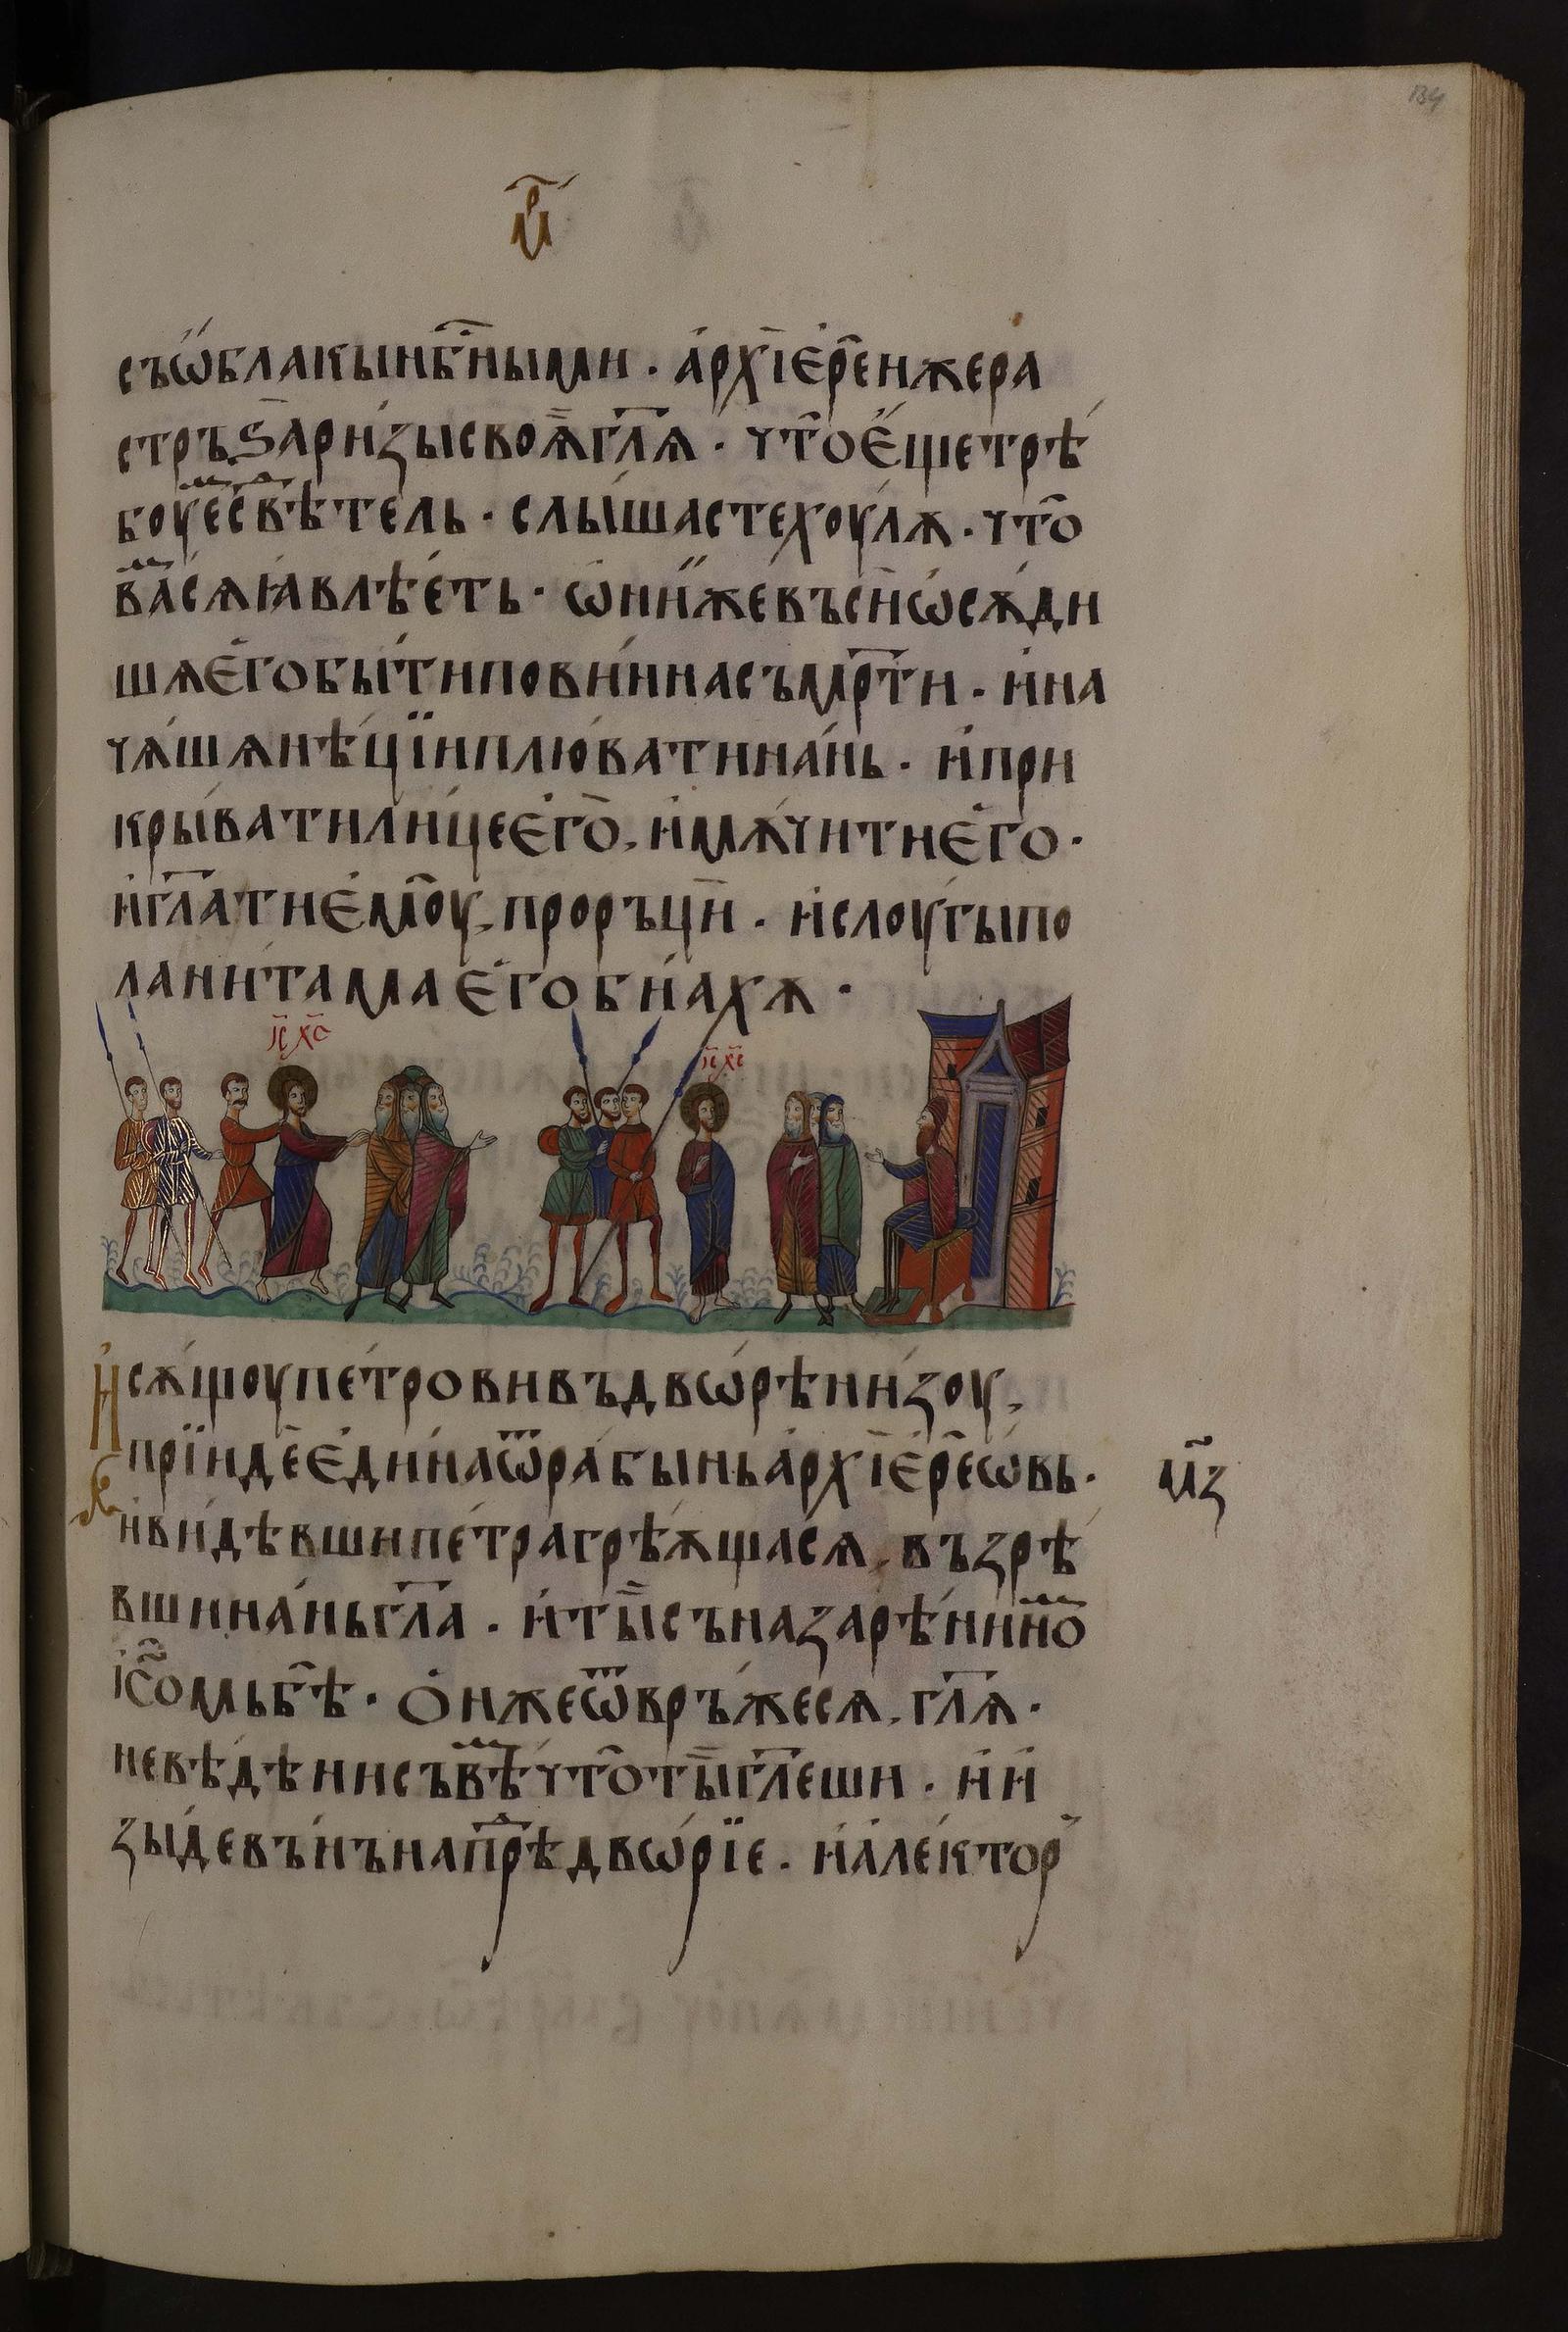 134
мр҃
съѡ҆блакы нб҃ными · а҆рхїе҆ре҆и же ра
стръѕа ри́зы своѧ҆ гл҃ѧ · что̀ е҆ще трѣ́
боуеⷨ свⷣѣтель · слы́шасте хоулѫ · что̀
ваⷨ сѧ ꙗ҆влѣ́еть · ѡ҆ни́ же въсѝ ѡ҆сѫ́ди
шѧ е҆го бы́ти пови́нна съмр҃ти · и҆ на
чѧ́шѧ нѣ́цїи плюва́ти на́нь · и҆ при
крыва́ти лице е҆го̀, и҆ мѫ́чити е҆го ·
и҆ гл҃ати е҆моу̀, проръцѝ · и҆ слоугы по
лани́тама е҆го бїахѫ ·
і҃с х҃с
і҃с х҃с
И҆ сѫ́щоу петрови въ двѡ́рѣ ни́зоу,
прїидѐ е҆ди́на ѿ рабы́нь а҆рхїе҆ре҆ѡвь ·
м҃з
и҆ ви́дѣвши пе́тра грѣ́ѫща сѧ, възрѣ́
вши на́нь гл҃а · и҆ ты̀ съ назарѣ́ниноⷨ
і҃сомь бѣ̀ · О҆н же ѿвръ́жесѧ, гл҃ѧ ·
не вѣ́дѣ ни съвѣⷨ что̀ ты̀ гл҃еши · и҆ и҆
зы́де вънъ на прѣⷣдвѡ́рїе · и҆ а҆ле́ктор